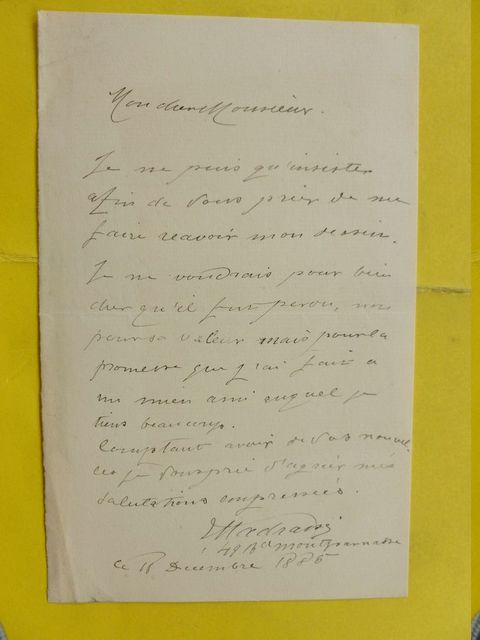 Mon cher Monsieur.
Je ne puis qu'insister
afin de vous prier de me
faire ravoir mon dessin.
Je ne voudrais pour bien
cher qu'il fut perdu, non
pour sa valeur mais pour la
promesse que j'ai fait a
un mien ami auquel je
tiens beaucoup.
Comptant avoir de vos nouvel
les je vous prie d'agréer mes
salutations empressées.
49 Bd Montparnasse
ce 16 Decembre 1885